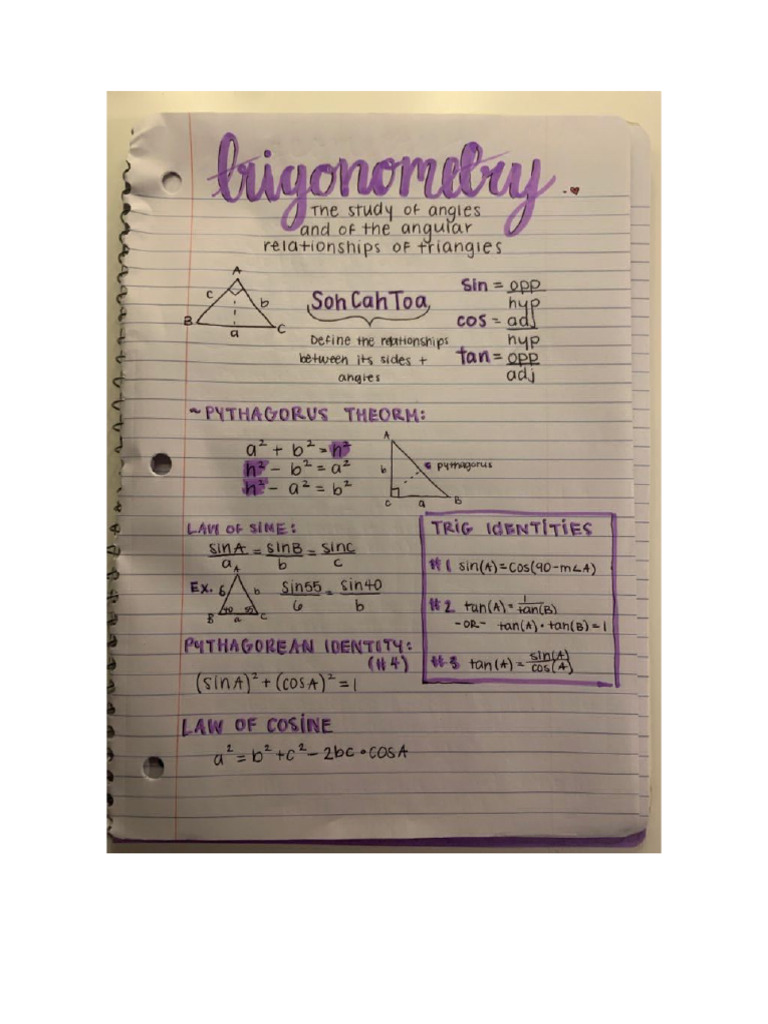 trigonometry
The study of angles
and of the angular
relationships of triangles
A
c b
B a C
SohCahToa
Define the relationships
between its sides +
angles
sin = opp
hyp
cos = adj
hyp
tan = opp
adj
~PYTHAGORUS THEORM:
a² + b² = h²
h² - b² = a²
h² - a² = b²
A
b pythagorus
C a B
LAW OF SINE:
sinA = sinB = sinC
a b c
Ex. A
6 b
B 40 55 C
a
sin55 = sin40
6 b
PYTHAGOREAN IDENTITY:
(#4)
(sinA)² + (cosA)² = 1
TRIG IDENTITIES
#1 sin(A)=cos(90-m∠A)
#2 tan(A)= 1
tan(B)
-OR- tan(A)•tan(B)=1
#3 tan(A)= sin(A)
cos(A)
LAW OF COSINE
a² = b² + c² - 2bc • cosA